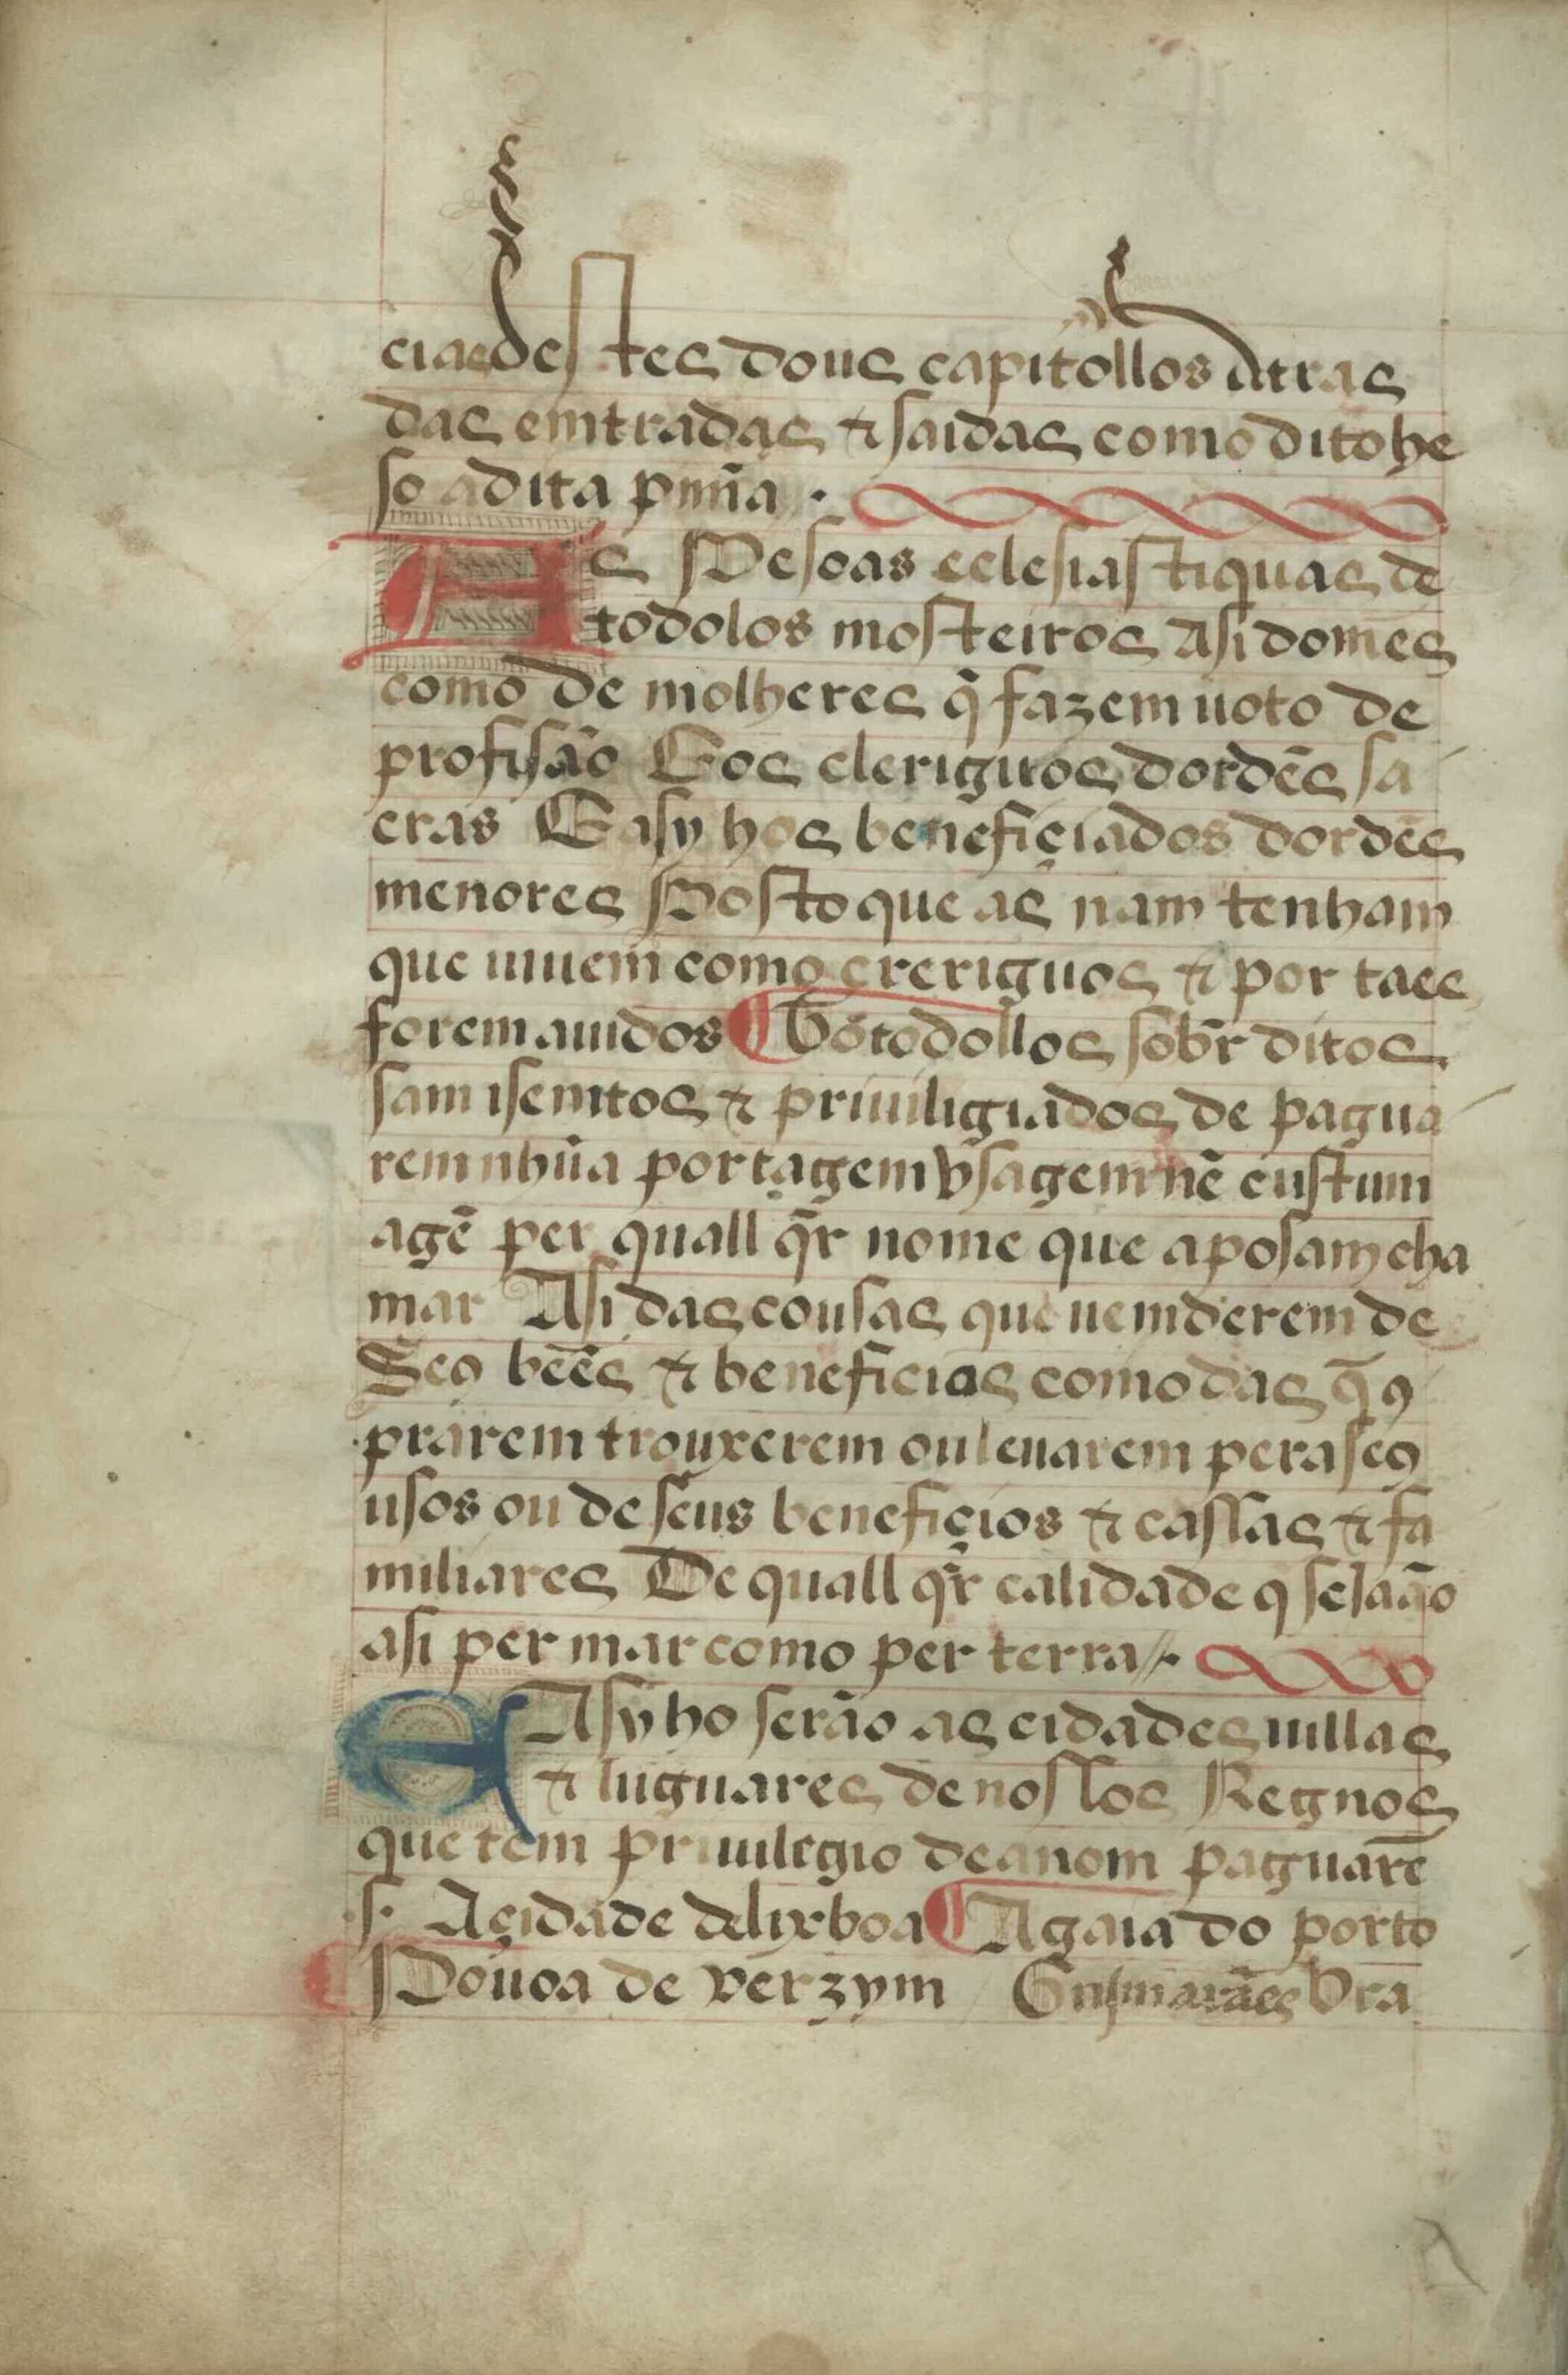 cias destes dous capitollos atras
das emtradas ⁊ saidas como dito he
so a dita pen̄a .
As Pesoas eclesiastiquas de
todolos mosteiros Asi domẽes
como de molheres q̃ fazem uoto de
profisão E os cleriguos dordẽs sa
cras E asy hos benefiçiados dordẽes
menores Posto que as nam tenham
que uiuem como creriguos ⁊ por taes
forem auidos ¶ todollos sobr̃ ditos
sam isemtos ⁊ priuiligiados de pagua
rem nhũa portagem vsagem nẽ custum
agẽ per quall q̃r nome que a posam cha
mar Asi das cousas que uemderem de
Seꝯ bẽes ⁊ beneficios como das q̃ ꝯ
prarem trouxerem ou leuarem pera seꝯ
usos ou de seus benefiçios ⁊ cassas ⁊ fa
miliares De quall q̃r calidade q̃ sejaão
asi per mar como per terra //.
E Asy ho serão as cidades uillas
⁊ luguares de nossos Regnos
que tem priuilegio de a nom paguarẽ
.s. A çidade de lixboa ¶ A gaia do porto
¶ Pouoa de verzym / Guimarães Bra